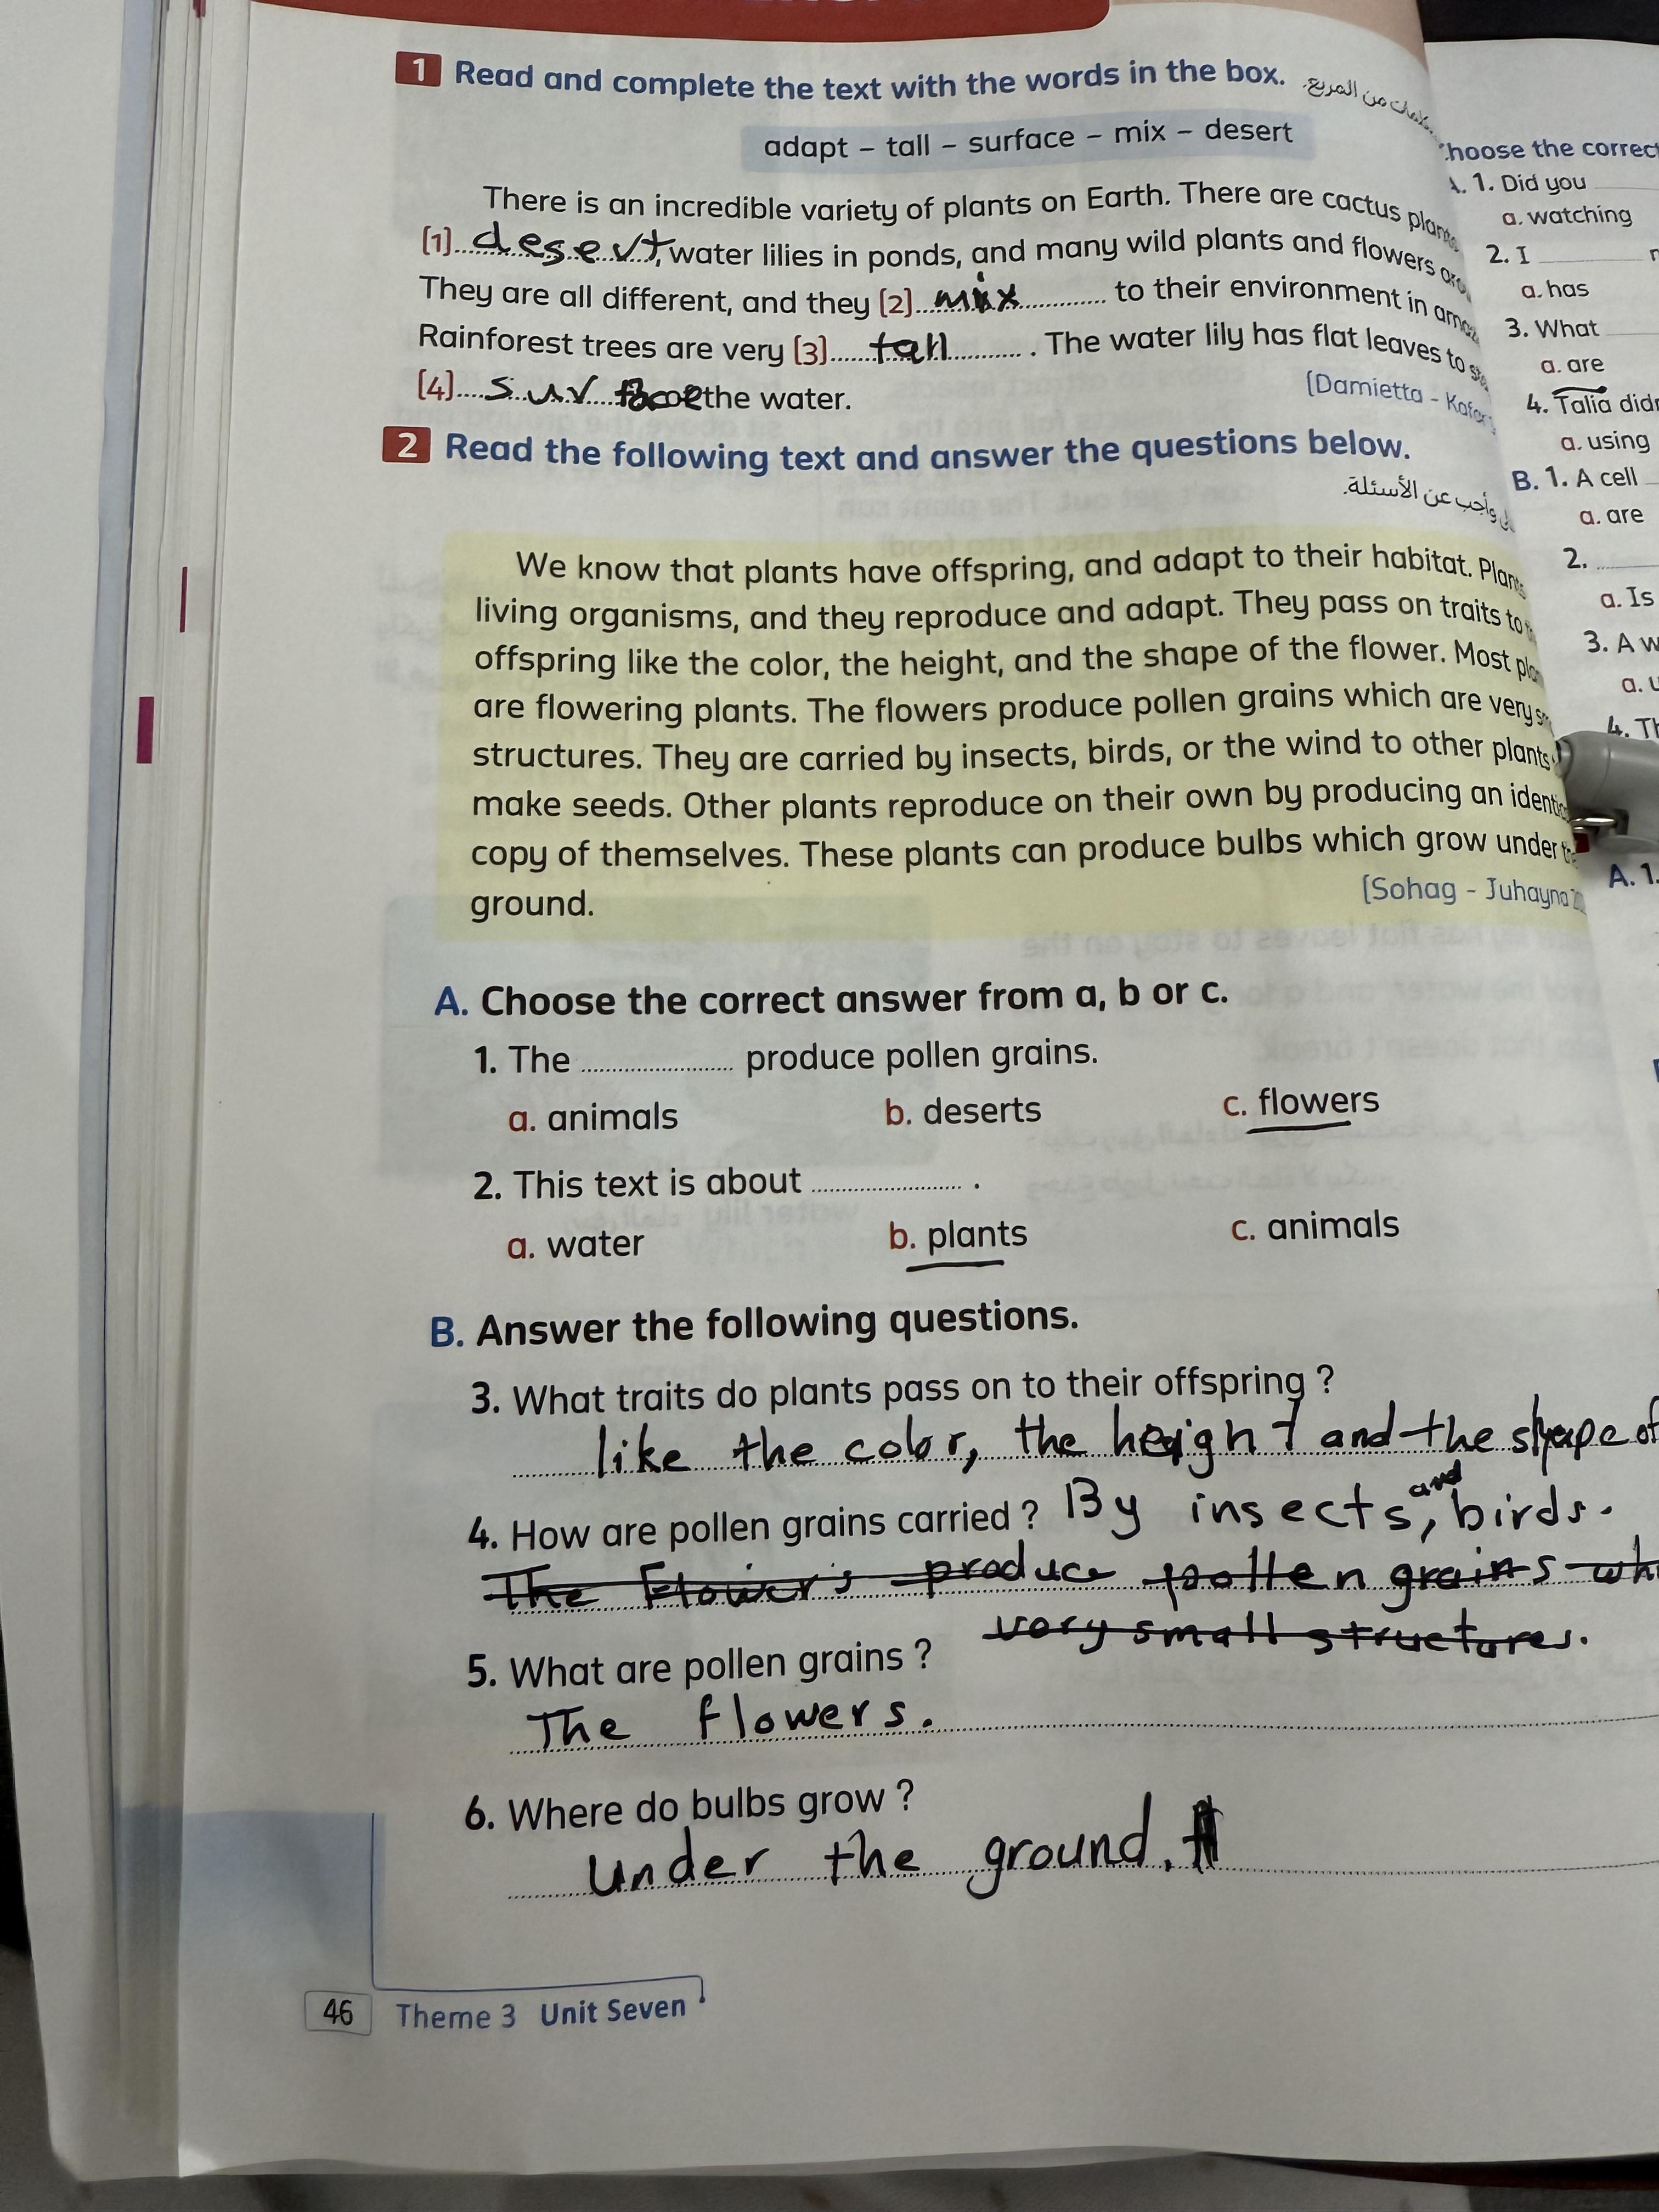 1 Read and complete the text with the words in the box.
adapt – tall – surface – mix – desert
There is an incredible variety of plants on Earth. There are cactus
(1) desert, water lilies in ponds, and many wild plants and flowers
They are all different, and they (2) mix to their environment in
Rainforest trees are very (3) tall . The water lily has flat leaves to
(4) surface the water.
(Damietta -
2 Read the following text and answer the questions below.
وأجب عن الأسئلة.
We know that plants have offspring, and adapt to their habitat.
living organisms, and they reproduce and adapt. They pass on traits to
offspring like the color, the height, and the shape of the flower. Most
are flowering plants. The flowers produce pollen grains which are very
structures. They are carried by insects, birds, or the wind to other plants
make seeds. Other plants reproduce on their own by producing an
copy of themselves. These plants can produce bulbs which grow under
ground.
(Sohag - Juhayna
A. Choose the correct answer from a, b or c.
1. The produce pollen grains.
a. animals b. deserts c. flowers
2. This text is about .
a. water b. plants c. animals
B. Answer the following questions.
3. What traits do plants pass on to their offspring ?
like the color, the height and the shape of
4. How are pollen grains carried ? By insects, and birds.
The Flowers produce pollen grains
very small structures.
5. What are pollen grains ?
The flowers.
6. Where do bulbs grow ?
Under the ground.
46 Theme 3 Unit Seven
hoose the correct
1. Did you
a. watching
2. I
a. has
3. What
a. are
4. Talia
a. using
B. 1. A cell
a. are
2.
a. Is
3. A
a.
4.
A. 1.